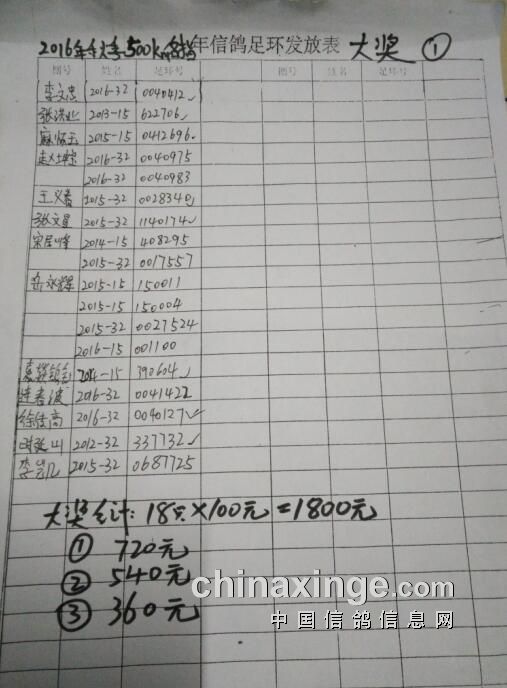 2016年秋季500k 年信鸽足环发放表 大奖 ①
圈号 姓名 足环号 圈号 姓名 足环号
李文忠 2016-32 0040412
张洪业 2013-15 622706
2015-15 0412696
2016-32 0040975
2016-32 0040983
王义 2015-32 0028340
张文星 2015-32 1140174
宋居峰 2014-15 408295
2015-32 0017557
岳永辉 2015-15 150011
2015-15 150004
2015-32 0027524
2016-15 001100
2014-15 390604
春波 2016-32 0041422
徐传高 2016-32 0040127
2012-32 337732
李 2015-32 0687725
大奖合计:18只×100元=1800元
① 720元
② 540元
③ 360元
chinaxinge.com
中国信鸽信息网